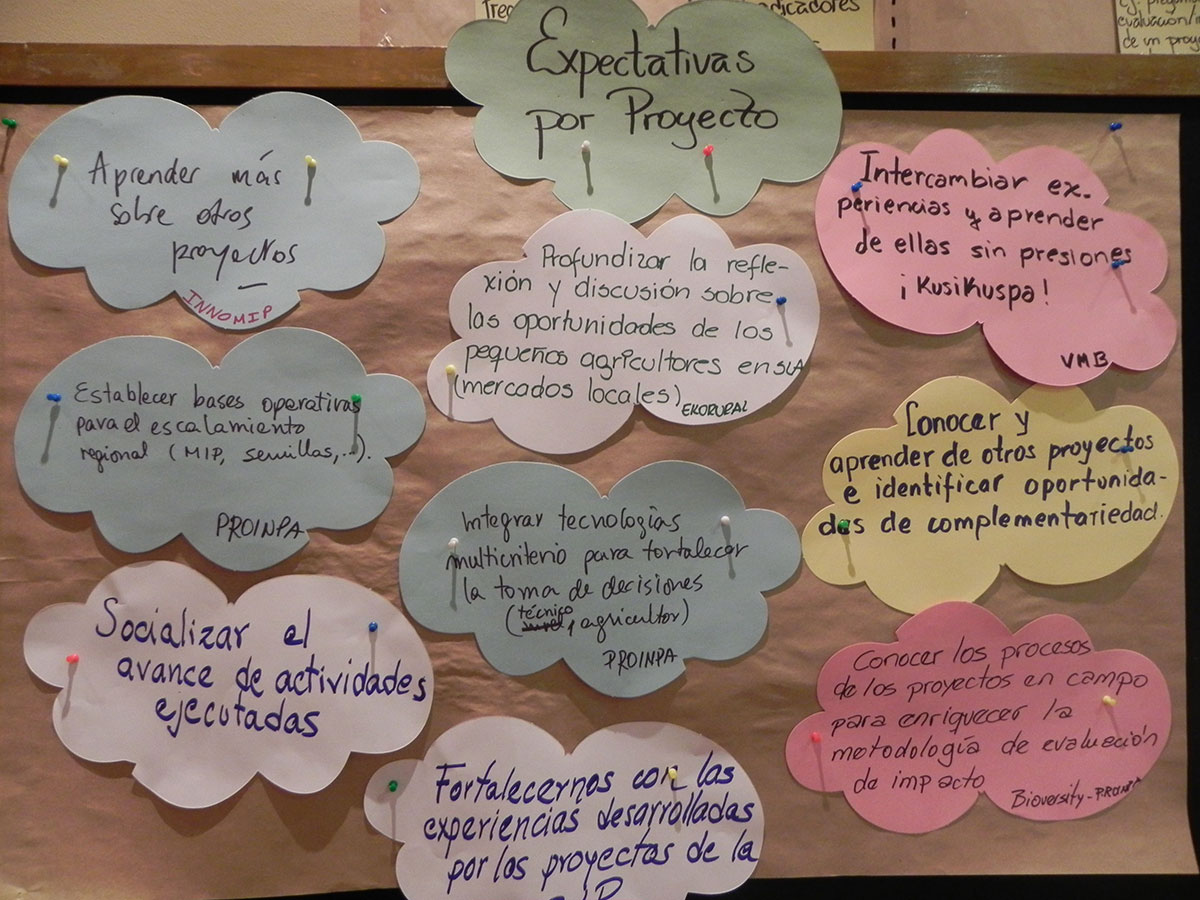 dicadores
evaluación/
de un proye
Expectativas
por Proyecto
Aprender más
sobre otros
proyectos
INNOMIP
Establecer bases operativas
para el escalamiento
regional (MIP, semillas,...).
PROINPA
Socializar el
avance de actividades
ejecutadas
Profundizar la refle-
xión y discusión sobre
las oportunidades de los
pequeños agricultores en SLA
(mercados locales)
EKORURAL
Integrar tecnologías
multicriterio para fortalecer
la toma de decisiones
(técnico, agricultor)
PROINPA
Fortalecernos con las
experiencias desarrolladas
por los proyectos de la
Intercambiar ex-
periencias y aprender
de ellas sin presiones
¡KusiKuspa!
VMB
Conocer y
aprender de otros proyectos
e identificar oportunida-
des de complementariedad.
Conocer los procesos
de los proyectos en campo
para enriquecer la
metodología de evaluación
de impacto
Bioversity-PROINPA